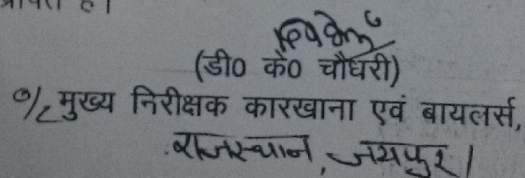 (डी० के० चौधरी)
मुख्य निरीक्षक कारखाना एवं बायलर्स,
राजस्थान, जयपुर।